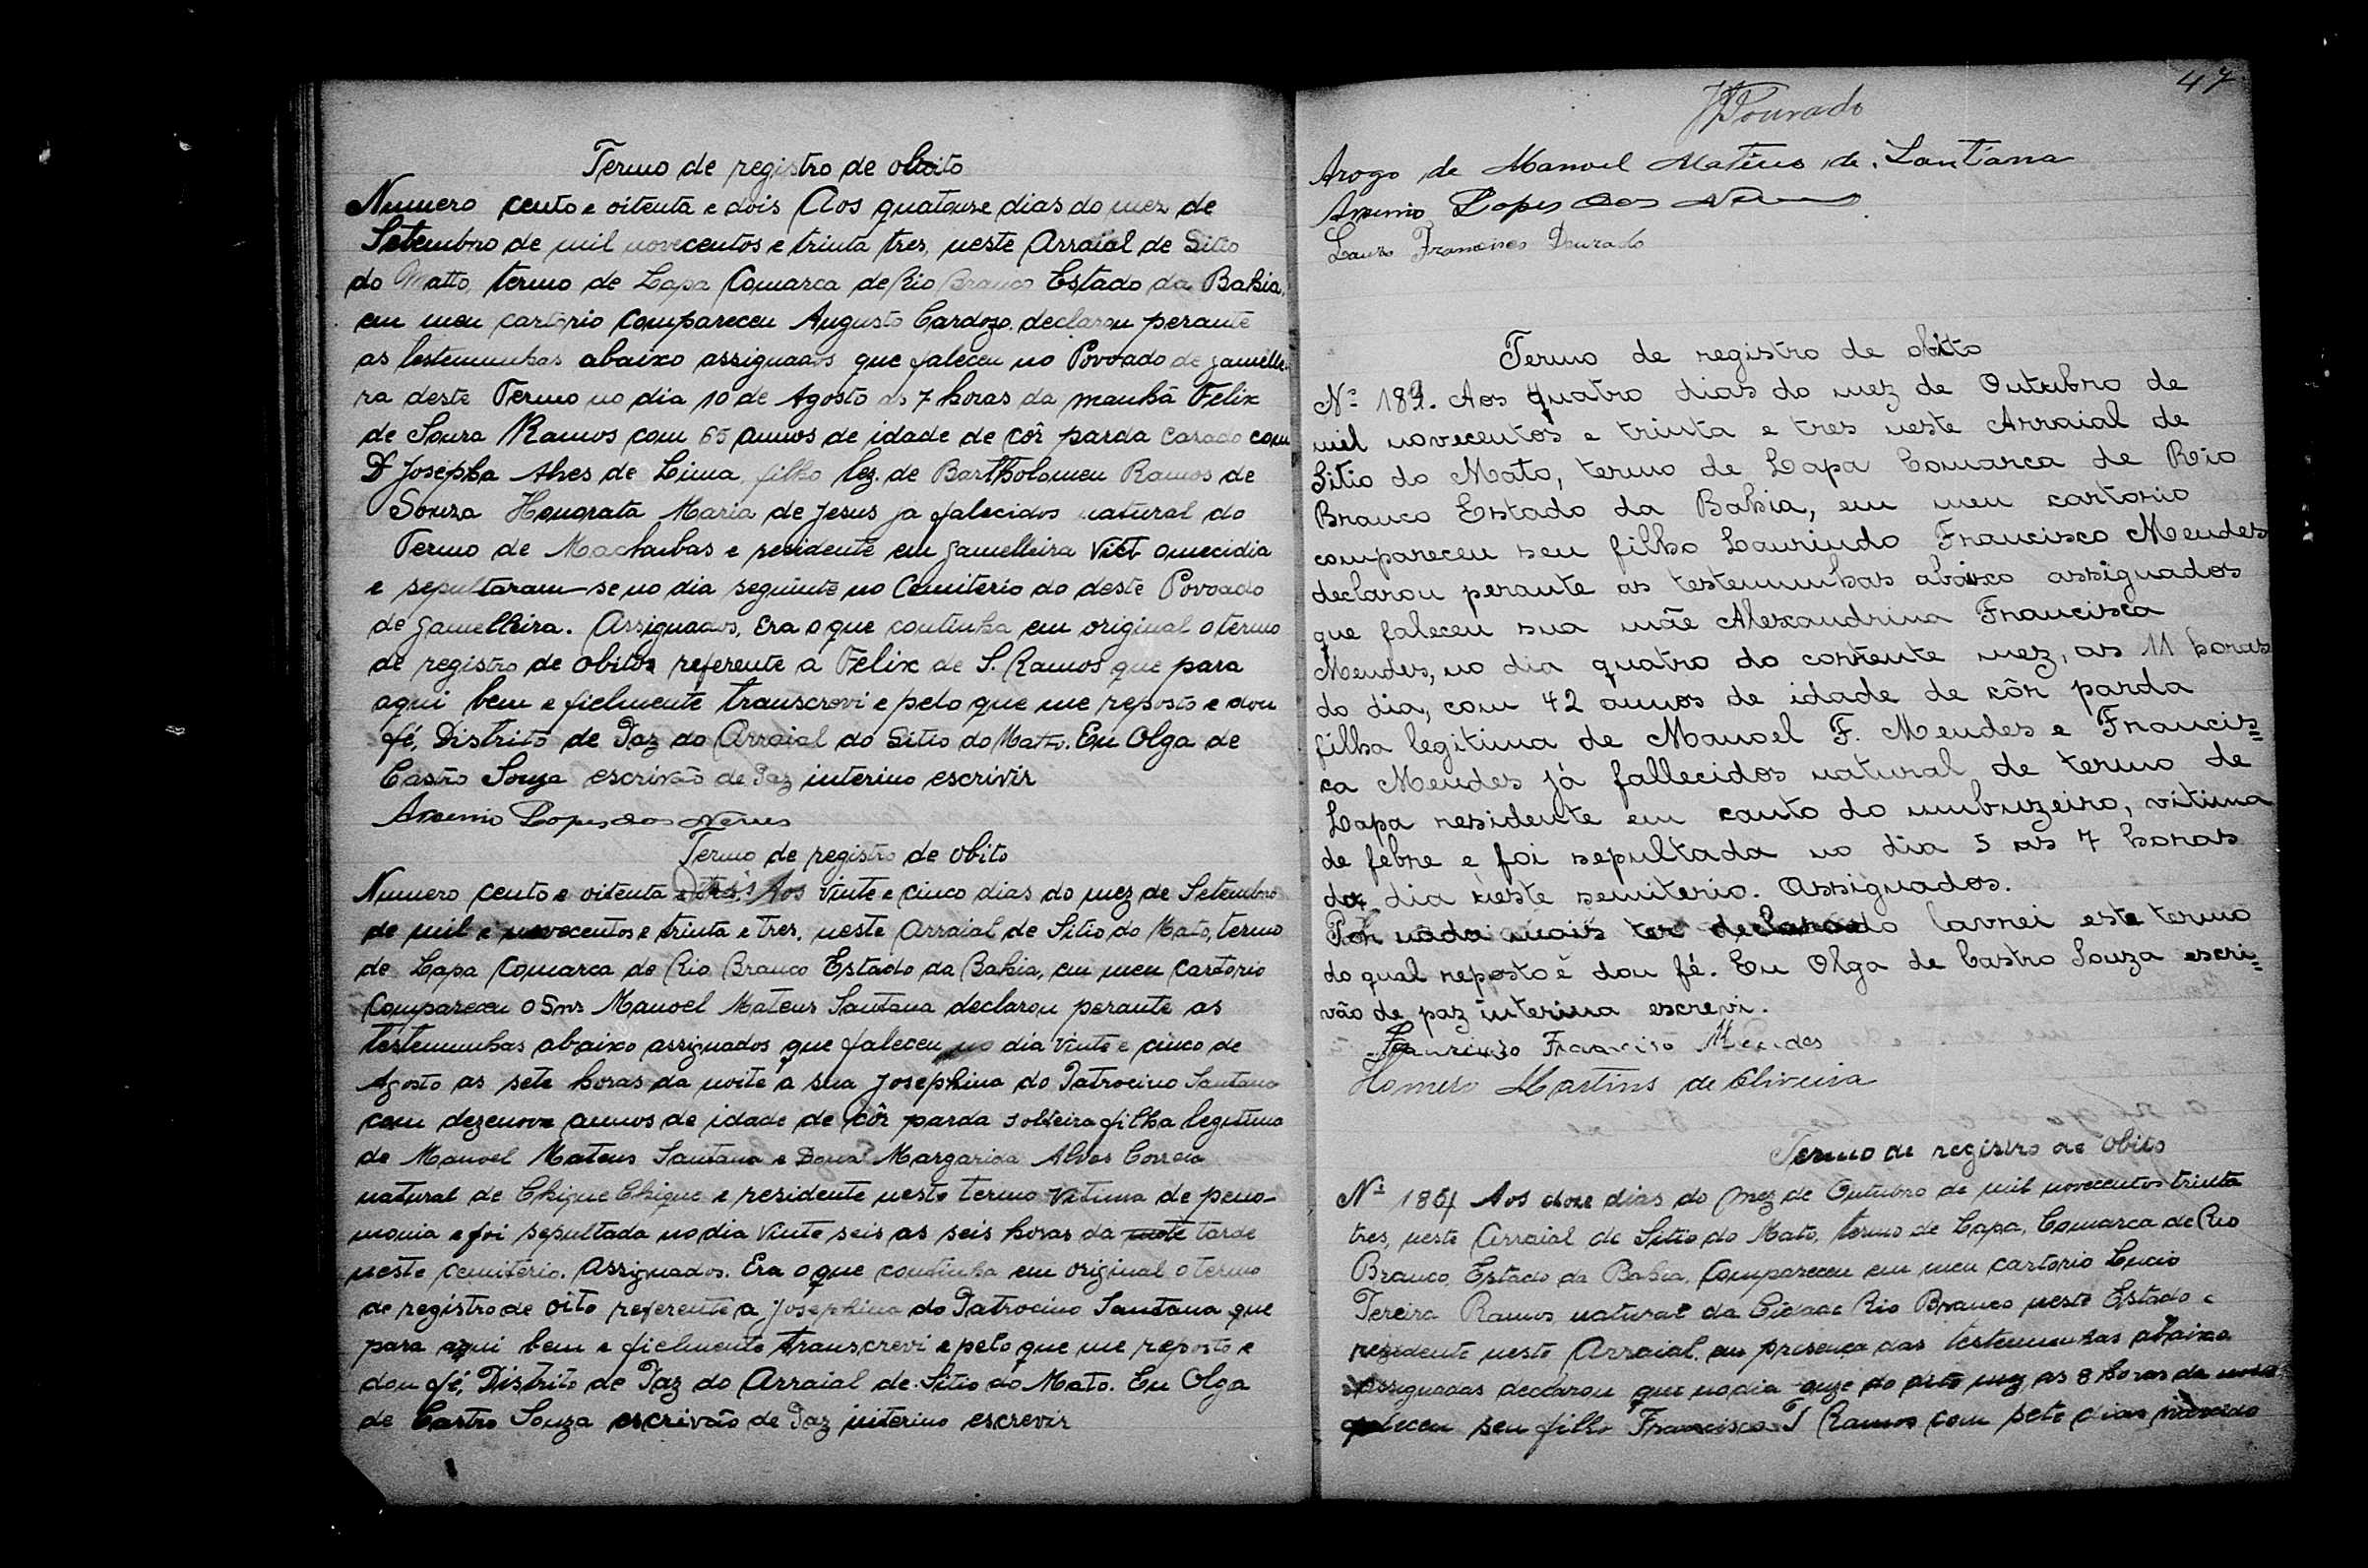 Termo de registro de obito
Numero cento e oitenta e dois Aos quatorze dias do mez de
Setembro de mil novecentos e trinta tres, neste Arraial de Sitio
do Matto, termo de Lapa Comarca de Rio Branco Estado da Bahia,
em meu cartorio compareceu Augusto Cardozo. declarou perante
as testemunhas abaixo assignados que faleceu no Povoado de gamellei-
ra deste Termo no dia 10 de Agosto as 7 horas da manhã Felix
de Souza Ramos com 65 annos de idade de côr parda casado com
D. Josépha Alves de Lima, filho leg. de Bartholomeu Ramos de
Souza Honorata Maria de Jesus ja falecidos natural do
Termo de Macahubas e residente em gamelleira Vict omecidia
e sepultaram-se no dia seguinte no Cemiterio do deste Povoado
de gamelleira. Assignados, Era o que continha em original o termo
de registro de obitos referente a Felix de S. Ramos que para
aqui bem e fielmente transcrevi e pelo que me reposto e dou
fé, Distrito de Paz do Arraial do Sitio do Matto. Eu Olga de
Castro Souza escrivão de Paz interino escrivir
Arsenio Lopes dos Neves
Termo de registro de obito
Numero cento e oitenta e tres Aos vinte e cinco dias do mez de Setembro
de mil e novecentos e trinta e tres, neste Arraial de Sitio do Mato, termo
de Lapa Comarca de Rio Branco Estado da Bahia, em meu cartorio
compareceu o Snr Manoel Mateus Santana declarou perante as
testemunhas abaixo assignados que faleceu no dia vinte e cinco de
Agosto as sete horas da noite a sua Josephina do Patrocino Santana
com dezenove annos de idade de côr parda solteira filha legitima
de Manoel Mateus Santana e Dona Margarida Alves Correia
natural de Chique Chique e residente neste termo vitima de peno-
monia e foi sepultada no dia vinte seis as seis horas da noite tarde
neste cemiterio. Assignados. Era o que continha em original o termo
de registro de oito referente a Josephina do Patrocino Santana que
para aqui bem e fielmente transcrevi e pelo que me reposto e
dou fé, Distrito de Paz do Arraial de Sitio do Mato. Eu Olga
de Castro Souza escrivão de Paz interino escrevir
47
Dourado
Arogo de Manoel Mateus de Santana
Arsenio Lopes dos Neves
Lauro Francisco Dourado
Termo de registro de obito
Nº 183. Aos quatro dias do mez de Outubro de
mil novecentos e trinta e tres neste Arraial de
Sitio do Mato, termo de Lapa Comarca de Rio
Branco Estado da Bahia, em meu cartorio
compareceu seu filho Laurindo Francisco Mendes
declarou perante as testemunhas abaixo assignados
que faleceu sua mãe Alexandrina Francisca
Mendes, no dia quatro do corrente mez, as 11 horas
do dia, com 42 annos de idade de côr parda
filha legitima de Manoel F. Mendes e Francis=
ca Mendes já fallecidos natural de termo de
Lapa residente em canto do umbuzeiro, vitima
de febre e foi sepultada no dia 5 as 7 horas
do dia neste semiterio. Assignados.
Por nada mais ter declarado lavrei este termo
do qual reposto e dou fé. Eu Olga de Castro Souza escri=
vão de paz interina escrevi.
Laurindo Francisco Mendes
Homero Martins de Oliveira
Termo de registro de obito
Nº 184 Aos doze dias do mez de Outubro de mil novecentos trinta
tres, neste Arraial de Sitio do Mato, termo de Lapa, Comarca de Rio
Branco, Estado da Bahia, Compareceu em meu cartorio Lucio
Pereira Ramos, natural da Cidade Rio Branco neste Estado e
rezidente neste Arraial, em presença das testemunhas abaixo
assignadas declarou que no dia onze do mez as 8 horas da noite
faleceu seu filho Francisco P Ramos com sete dias nascido